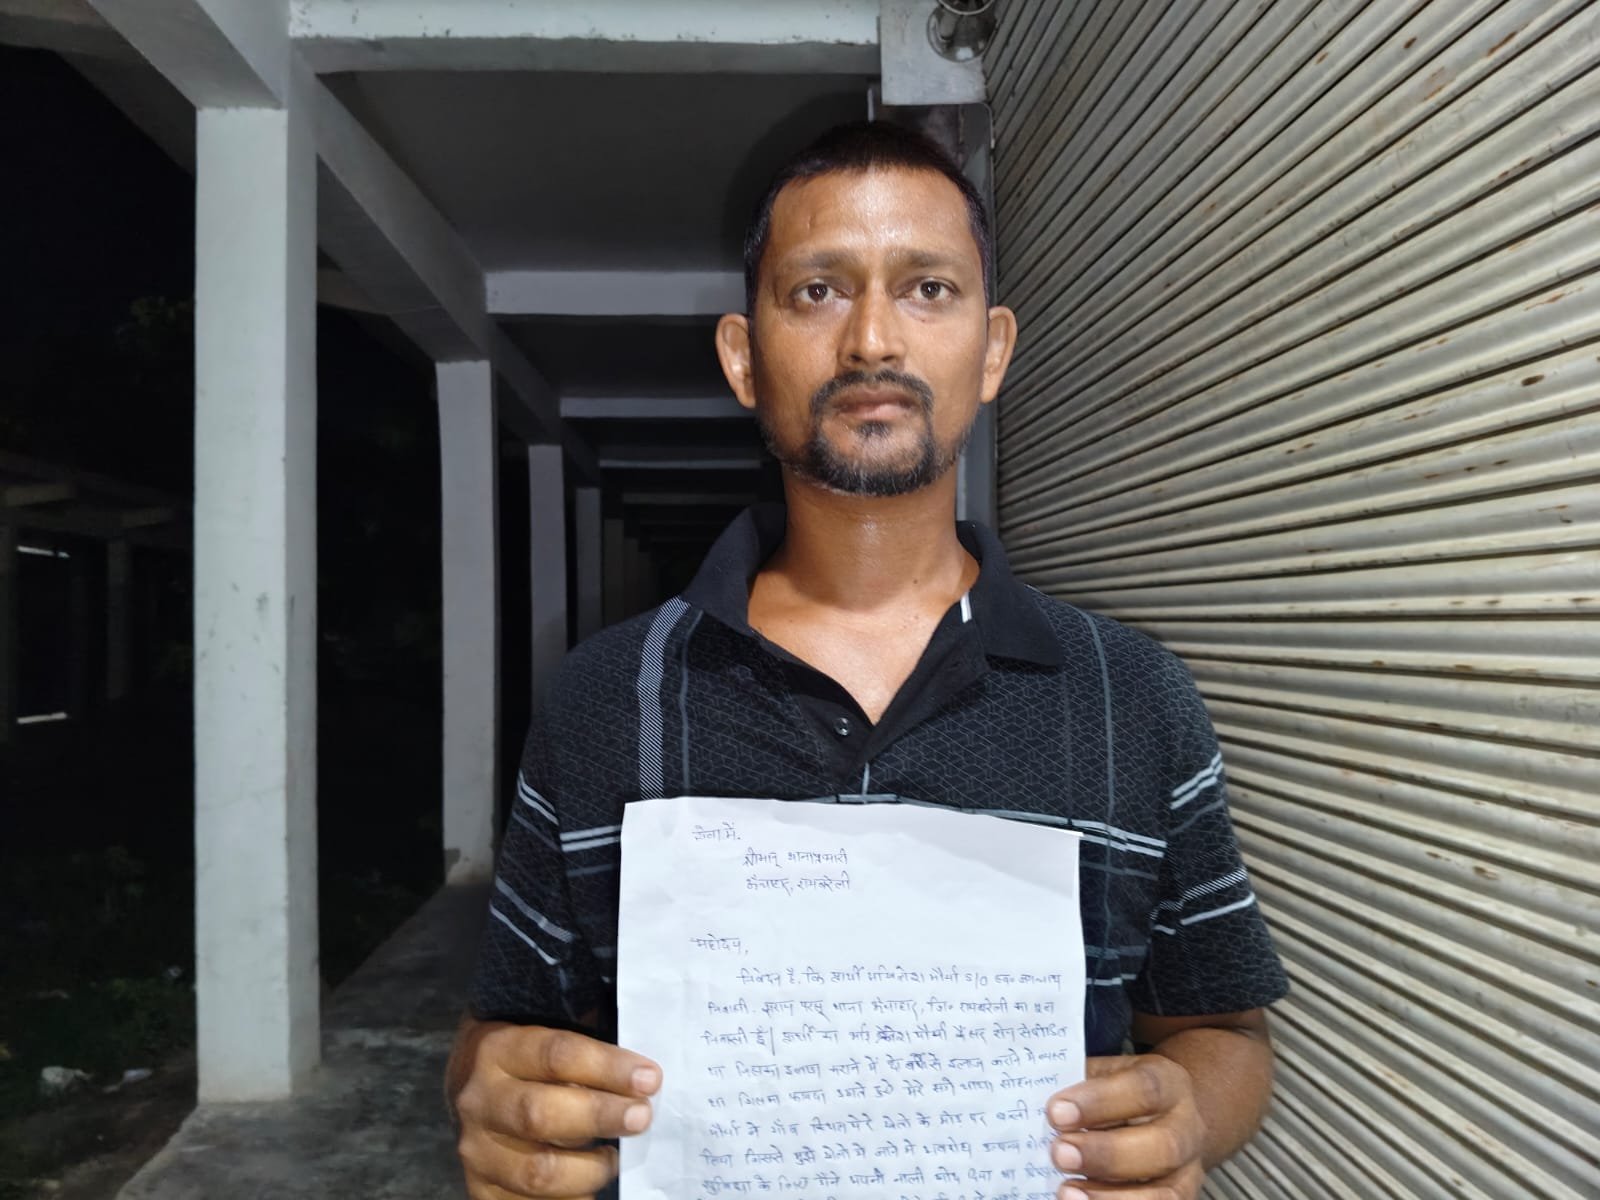 सेवा में,
श्रीमान् थानाप्रभारी
ऊँचाहार, रायबरेली
महोदय,
निवेदन है, कि प्रार्थी अखिलेश मौर्या S/O स्व०
निवासी- सराय परसू थाना ऊंचाहार, जि० रायबरेली का मूल
निवासी हूँ। प्रार्थी का भाई मौर्या कैंसर रोग से पीड़ित
था जिसका इलाज कराने में दो वर्षों से इलाज कराने में व्यस्त
था जिसका फायदा उठाते हुये मेरे सगे चाचा सोहनलाल
मौर्या ने गाँव स्थित मेरे खेतो के मेड़ पर
लिया जिससे मुझे खेतो में जाने में अवरोध उत्पन्न
सुविधा के लिए मैंने अपनी नाली खोद दिया था